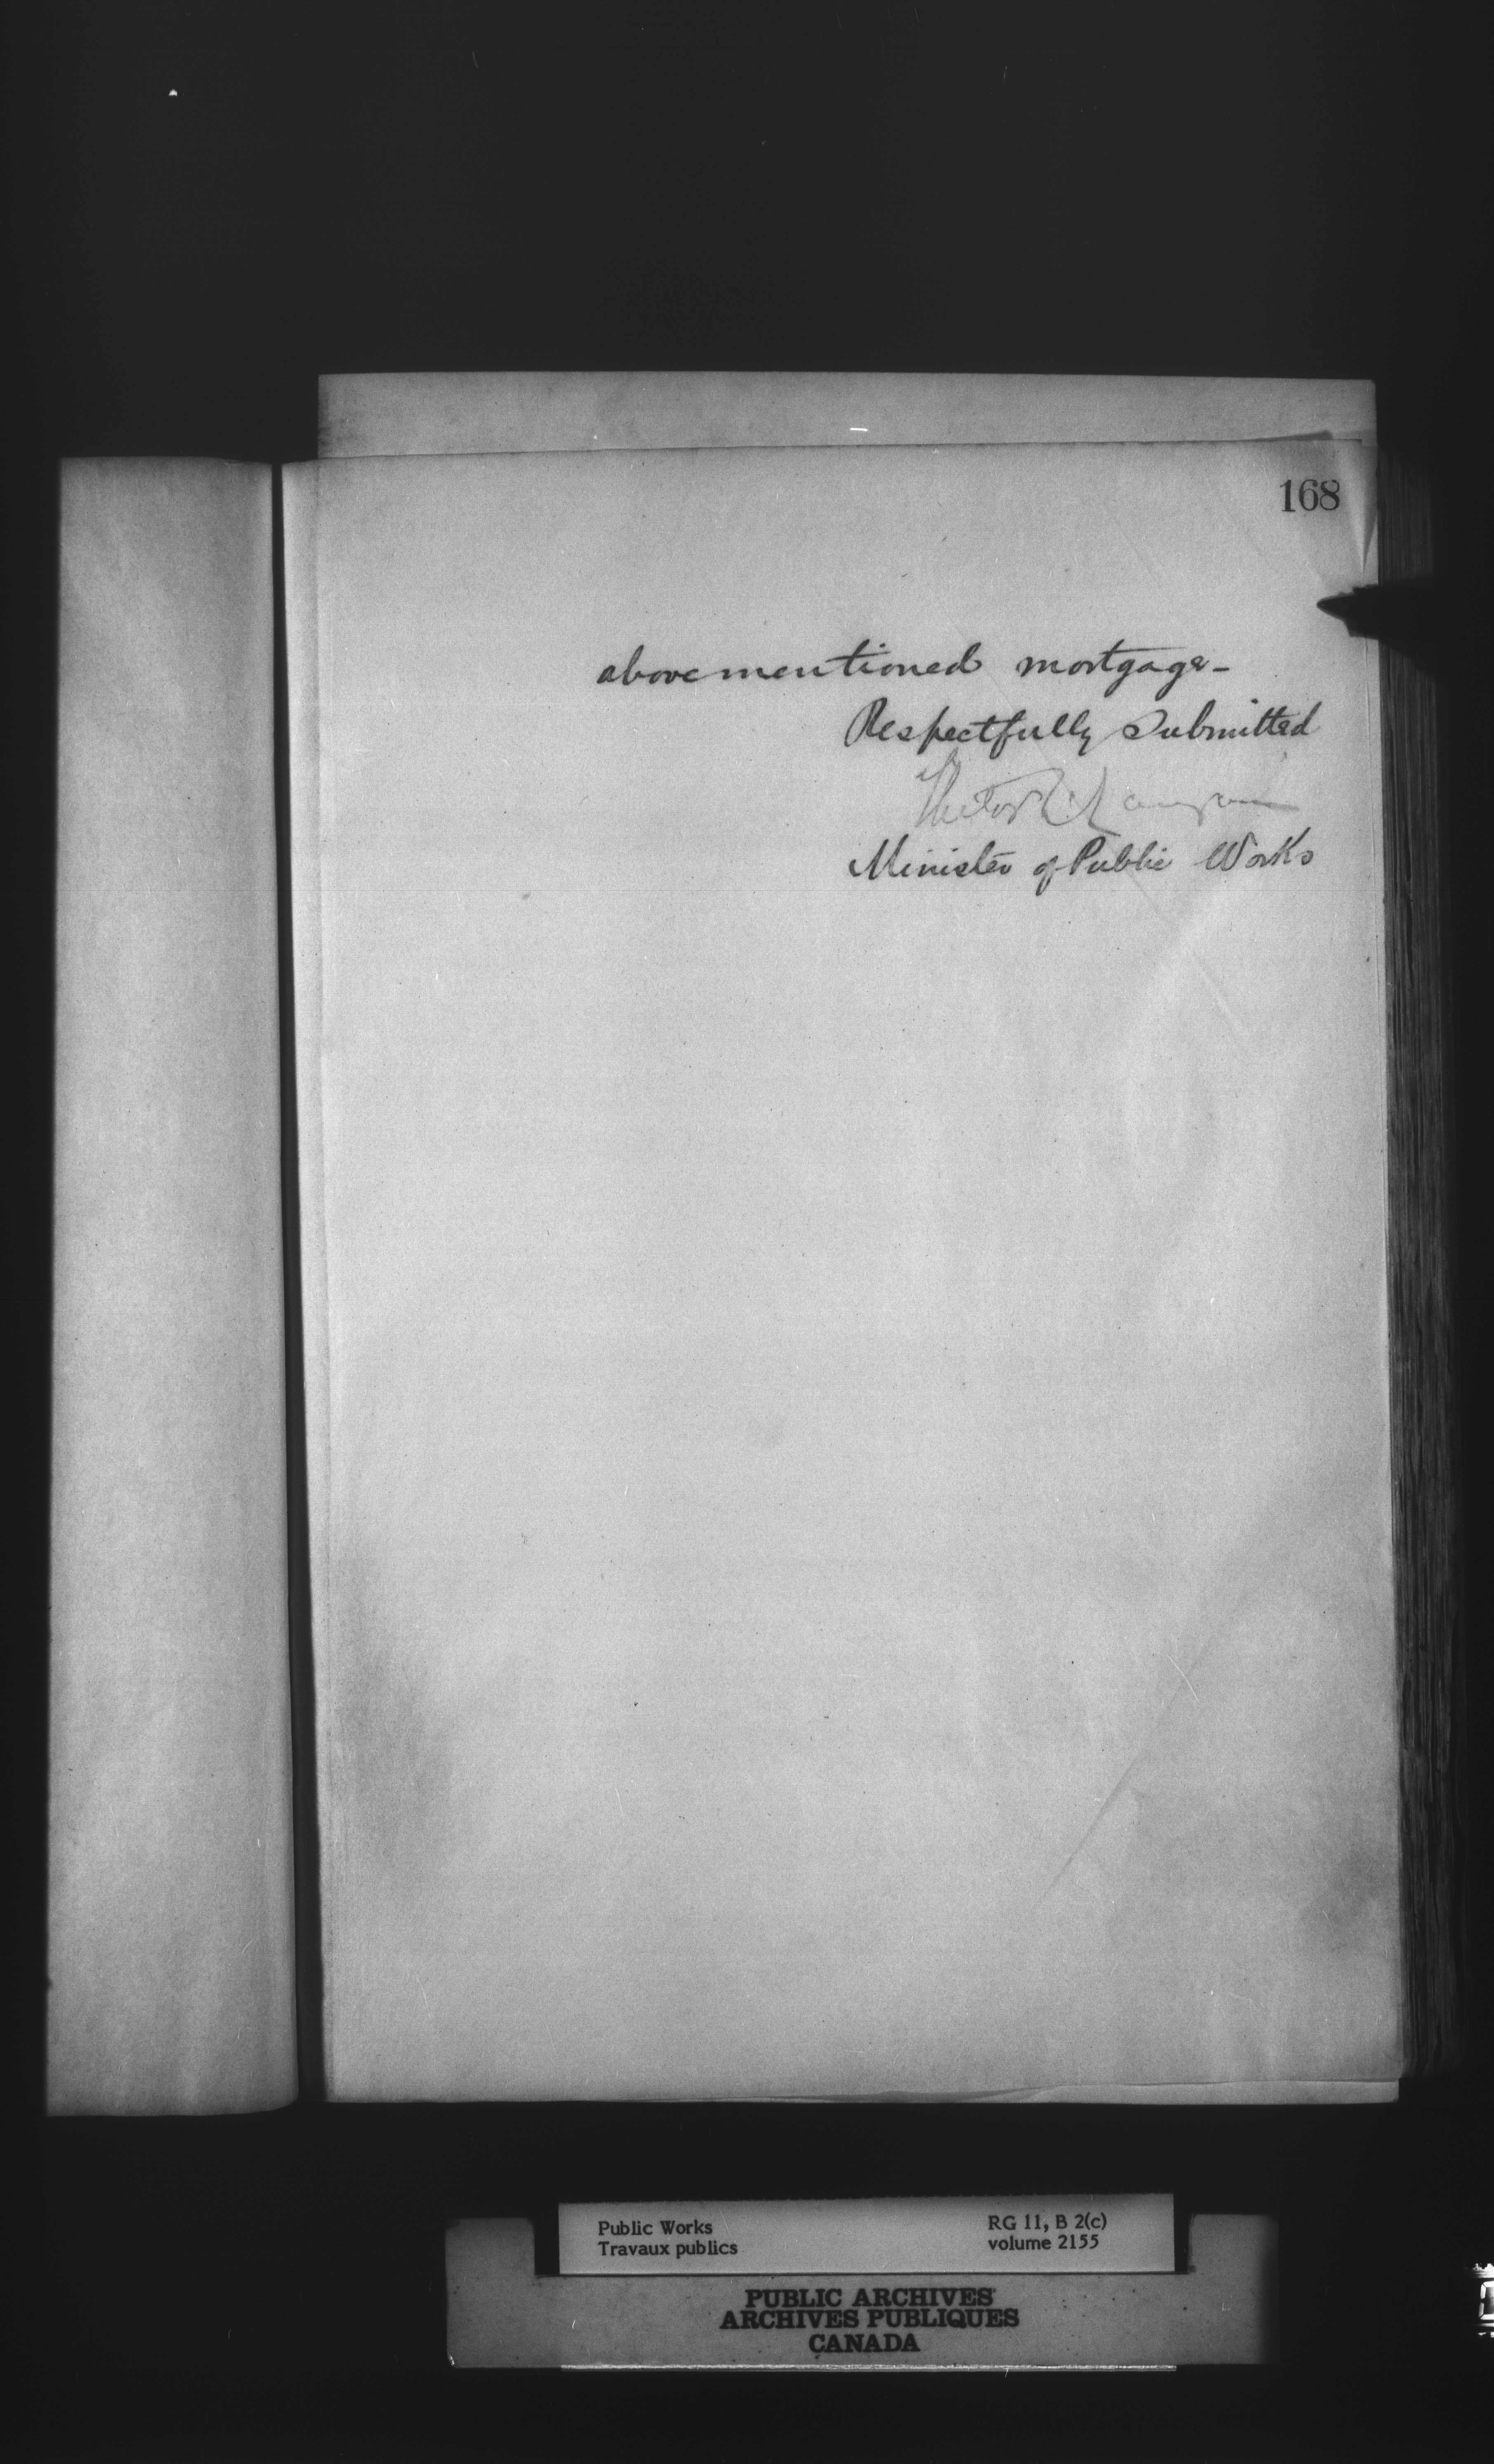 168
abovementioned mortgage -
Respectfully Submitted
Hector L. Langevin
Minister of Public Works
Public Works
Travaux publics
RG 11, B 2(c)
volume 2155
PUBLIC ARCHIVES
ARCHIVES PUBLIQUES
CANADA